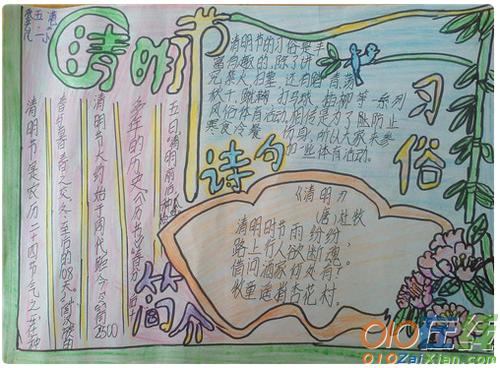 清明节
清明节的习俗是丰
富有趣的,除了讲
究禁火、扫墓,还有踏青、荡
秋千、蹴鞠、打马球、插柳等一系列
风俗体育活动。相传这是为了防止
寒食冷餐伤身,所以大家来参
加一些体育活动。
习俗
诗句
《清明》
唐 杜牧
清明时节雨纷纷,
路上行人欲断魂。
借问酒家何处有?
牧童遥指杏花村。
简介
清明节是农历二十四节气之一,在仲
春与暮春之交,冬至后的108天。
清明节大约始于周代,距今已有2500
多年的历史。《历书》:春分后十
五日
010在线
010ZaiXian.com